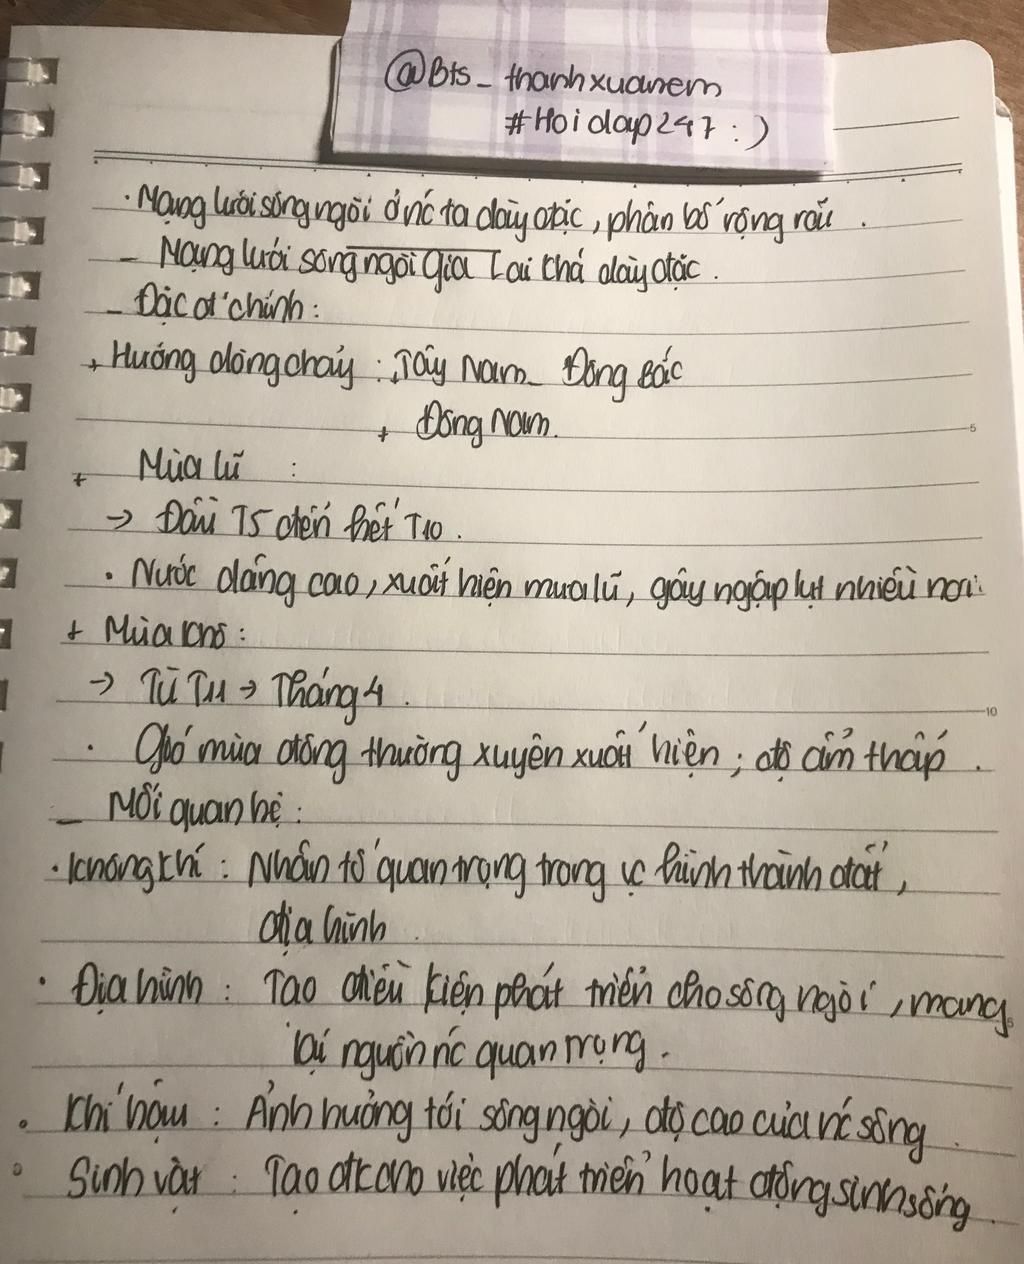 @Bts_thanhxuanem
#Hoidap247 :)
· Mạng lưới sông ngòi ở nc ta dày đặc, phân bố rộng rãi.
- Mạng lưới sông ngòi Gia Lai khá dày đặc.
- Đặc đ' chính:
+ Hướng dòng chảy: + Tây Nam - Đông Bắc
+ Đông Nam.
+ Mùa lũ :
→ Đầu T5 đến hết T10.
· Nước dâng cao, xuất hiện mưa lũ, gây ngập lụt nhiều nơi.
+ Mùa khô:
→ Từ T11 → Tháng 4.
· Gió mùa đông thường xuyên xuất hiện; độ ẩm thấp.
- Mối quan hệ:
· Không khí: Nhân tố quan trọng trong vc hình thành đất,
địa hình.
· Địa hình: Tạo điều kiện phát triển cho sông ngòi, mang
lại nguồn nc quan trọng.
· Khí hậu: Ảnh hưởng tới sông ngòi, độ cao của nc sông.
· Sinh vật: Tạo đk cho việc phát triển hoạt động sinh sống.